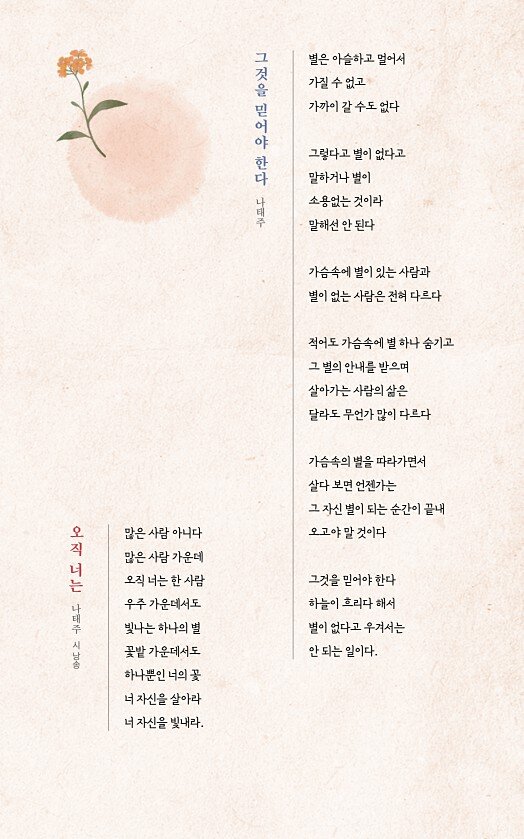 그것을 믿어야 한다
나태주
별은 아슬하고 멀어서
가질 수 없고
가까이 갈 수도 없다
그렇다고 별이 없다고
말하거나 별이
소용없는 것이라
말해선 안 된다
가슴속에 별이 있는 사람과
별이 없는 사람은 전혀 다르다
적어도 가슴속에 별 하나 숨기고
그 별의 안내를 받으며
살아가는 사람의 삶은
달라도 무언가 많이 다르다
가슴속의 별을 따라가면서
살다 보면 언젠가는
그 자신 별이 되는 순간이 끝내
오고야 말 것이다
그것을 믿어야 한다
하늘이 흐리다 해서
별이 없다고 우겨서는
안 되는 일이다.
오직 너는
나태주 시 낭송
많은 사람 아니다
많은 사람 가운데
오직 너는 한 사람
우주 가운데서도
빛나는 하나의 별
꽃밭 가운데서도
하나뿐인 너의 꽃
너 자신을 살아라
너 자신을 빛내라.